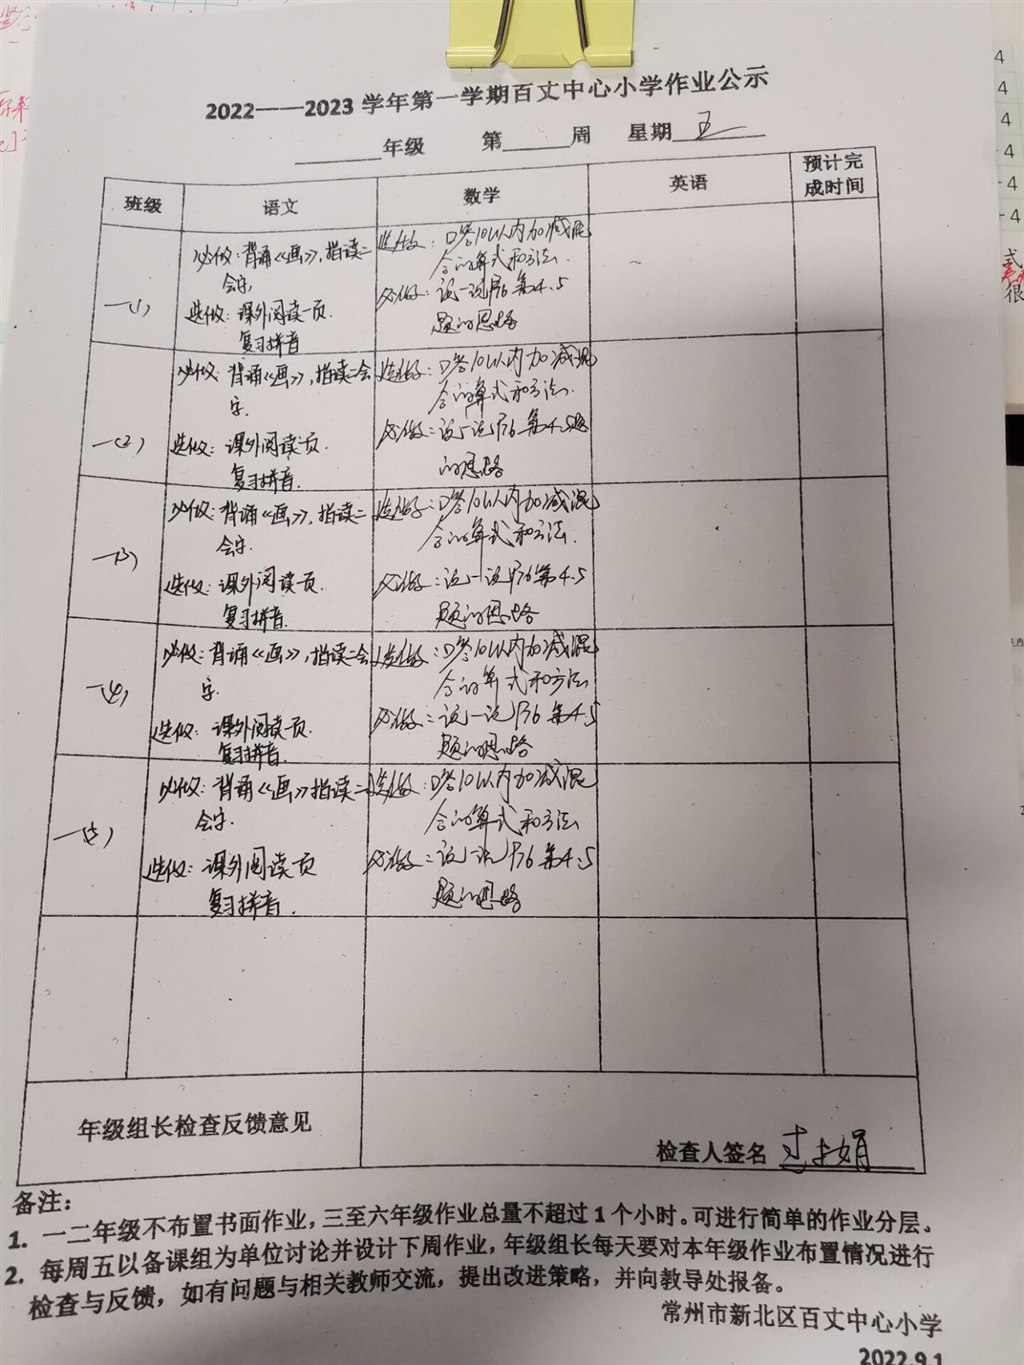 2022——2023 学年第一学期百丈中心小学作业公示
年级 第 周 星期 五
班级 语文 数学 英语 预计完成时间
一(1)
必做：背诵《画》，指读二
会字,
选做：课外阅读一页.
复习拼音
选做：口答10以内加减混
合的算式和方法.
必做：说一说P76第4.5
题的思路
一(2)
必做：背诵《画》，指读二会
字.
选做：课外阅读一页.
复习拼音.
选做：口答10以内加减混
合的算式和方法.
必做：说一说P76第4.5题
的思路
一(3)
必做：背诵《画》，指读二
会字.
选做：课外阅读一页.
复习拼音.
选做：口答10以内加减混
合的算式和方法.
必做：说一说P76第4.5
题的思路
一(4)
必做：背诵《画》，指读二会
字.
选做：课外阅读一页.
复习拼音.
选做：口答10以内加减混
合的算式和方法
必做：说一说P76第4.5
题的思路
一(5)
必做：背诵《画》指读二
会字.
选做：课外阅读一页
复习拼音.
选做：口答10以内加减混
合的算式和方法
必做：说一说P76第4.5
题的思路
年级组长检查反馈意见
检查人签名
备注：
1. 一二年级不布置书面作业，三至六年级作业总量不超过1个小时。可进行简单的作业分层。
2. 每周五以备课组为单位讨论并设计下周作业，年级组长每天要对本年级作业布置情况进行
检查与反馈，如有问题与相关教师交流，提出改进策略，并向教导处报备。
常州市新北区百丈中心小学
2022.9.1